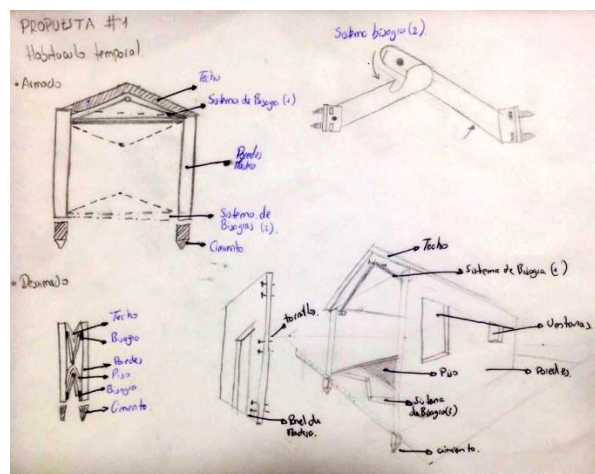 PROPUESTA #1
Habitaculo temporal
• Armado
Techo
Sistema de Bisagra (1)
Paredes
Madera
Sistema de
Bisagras (2)
Cimiento.
Sistema bisagra (2).
• Desarmado
Techo
Bisagra
Paredes
Piso
Bisagra
Cimiento.
tornillo.
Panel de
Madera.
Techo
Sistema de Bisagra (1)
Ventanas
Piso
Paredes.
Sistema
de Bisagra(2)
cimiento.